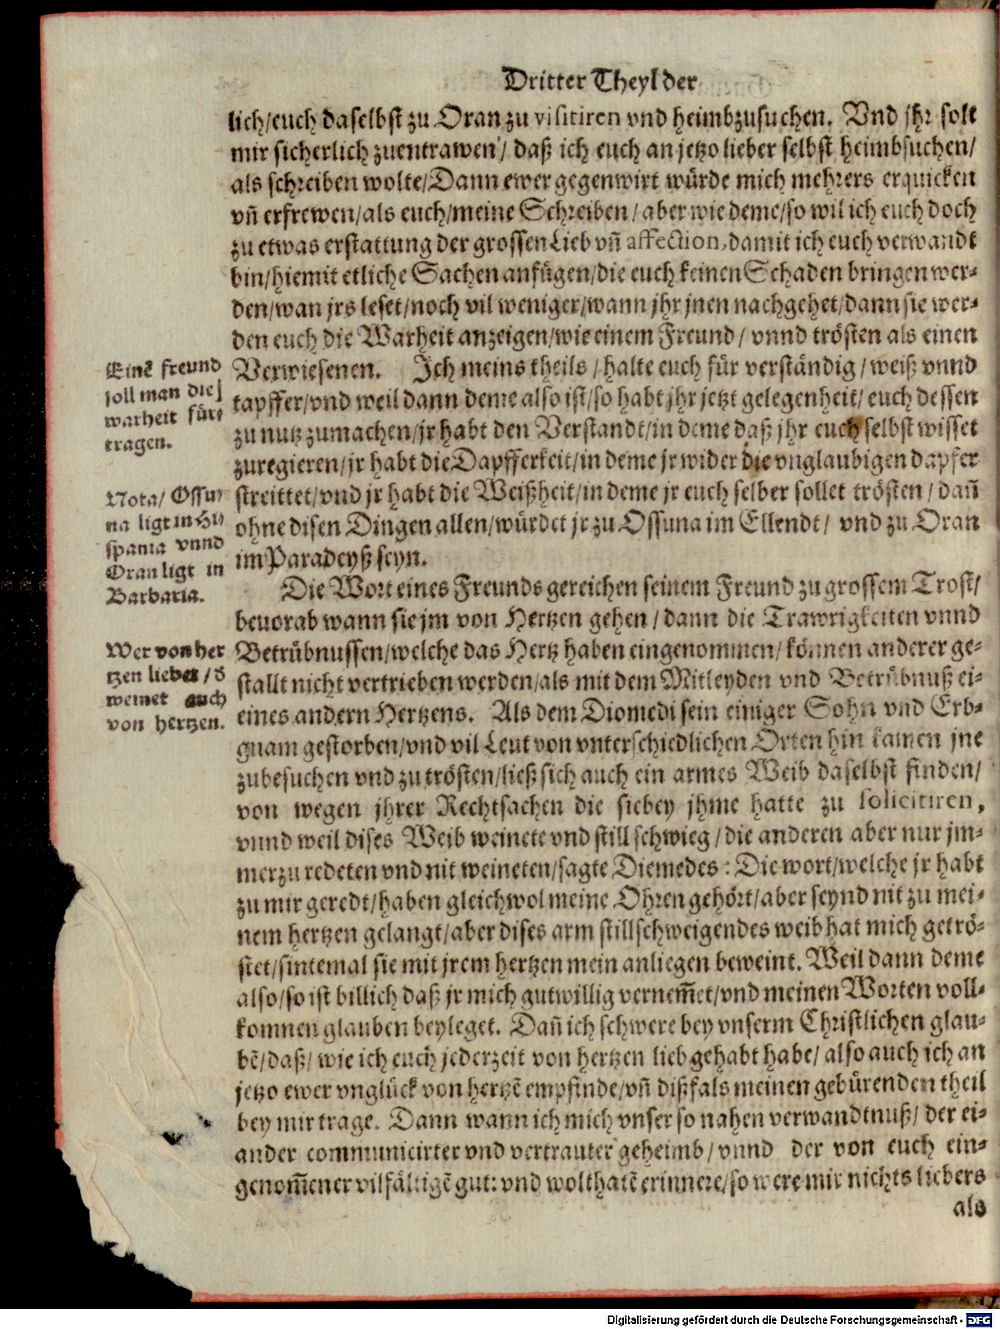 Dritter Theyl der
lich/euch daselbst zu Oran zu visitiren vnd heimbzusuchen. Vnd jhr solt
mir sicherlich zuentrawen/ daß ich euch an jetzo lieber selbst heimbsuchen/
als schreiben wolte/Dann ewer gegenwirt würde mich mehrers erquicken
vñ erfrewen/als euch/meine Schreiben/ aber wie deme/so wil ich euch doch
zu etwas erstattung der grossen Lieb vñ affection, damit ich euch verwandt
bin/hiemit etliche Sachen anfügen/die euch keinen Schaden bringen wer-
den/wan jrs leset/noch vil weniger/wann jhr jnen nachgehet/dann sie wer-
den euch die Warheit anzeigen/wie einem Freund/ vnnd trösten als einen
Verwiesenen. Ich meins theils/halte euch für verständig/ weiß vnnd
tapffer/vnd weil dann deme also ist/so habt jhr jetzt gelegenheit/ euch dessen
zu nutz zumachen/jr habt den Verstandt/in deme daß jhr euch selbst wisset
zuregieren/jr habt die Dapfferkeit/in deme jr wider die vnglaubigen dapfer
streittet/vnd jr habt die Weißheit/in deme jr euch selber sollet trösten/ dañ
ohne disen Dingen allen/würdet jr zu Ossuna im Ellendt/ vnd zu Oran
im Paradeyß seyn.
Einē freund
soll man die
warheit für-
tragen.
Nota/ Ossu-
na ligt in Hi-
spania vnnd
Oran ligt in
Barbaria.
Die Wort eines Freunds gereichen seinem Freund zu grossem Trost/
beuorab wann sie jm von Hertzen gehen/ dann die Trawrigkeiten vnnd
Betrübnussen/welche das Hertz haben eingenommen/ können anderer ge-
stallt nicht vertrieben werden/als mit dem Mitleyden vnd Betrübnuß ei-
eines andern Hertzens. Als dem Diomedi sein einiger Sohn vnd Erb-
gnam gestorben/vnd vil Leut von vnterschiedlichen Orten hin kamen jne
zubesuchen vnd zu trösten/ließ sich auch ein armes Weib daselbst finden/
von wegen jhrer Rechtsachen die sie bey jhme hatte zu solicitiren,
vnnd weil dises Weib weinete vnd still schwieg/ die anderen aber nur jm-
merzu redeten vnd nit weineten/sagte Diemedes: Die wort/welche jr habt
zu mir geredt/haben gleichwol meine Ohren gehört/aber seynd nit zu mei-
nem hertzen gelangt/aber dises arm stillschweigendes weib hat mich getrö-
stet/sintemal sie mit jrem hertzen mein anliegen beweint. Weil dann deme
also/so ist billich daß jr mich gutwillig vernem̃et/vnd meinen Worten voll-
komnen glauben beyleget. Dañ ich schwere bey vnserm Christlichen glau-
bē/daß/ wie ich euch jederzeit von hertzen lieb gehabt habe/ also auch ich an
jetzo ewer vnglück von hertzē empfinde/vñ dißfals meinen gebürenden theil
bey mir trage. Dann wann ich mich vnser so nahen verwandtnuß/ der ei-
ander communicirter vnd vertrauter geheimb/ vnnd der von euch ein-
genom̃ener vilfältigē gut: vnd wolthatē erinnere/so were mir nichts liebers
als
Wer von her
tzen liebet/ d̃
weinet auch
von hertzen.
Digitalisierung gefördert durch die Deutsche Forschungsgemeinschaft - DFG